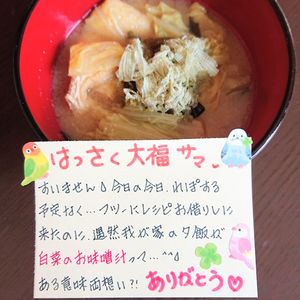 はっさく大福サマ
すいません♪今日の今日、れぽする
予定なく…フツーにレシピお借りしに
来たのに、偶然我が家の夕飯が
白菜のお味噌汁って…^^♪
ある意味両想い?! ありがとう♡